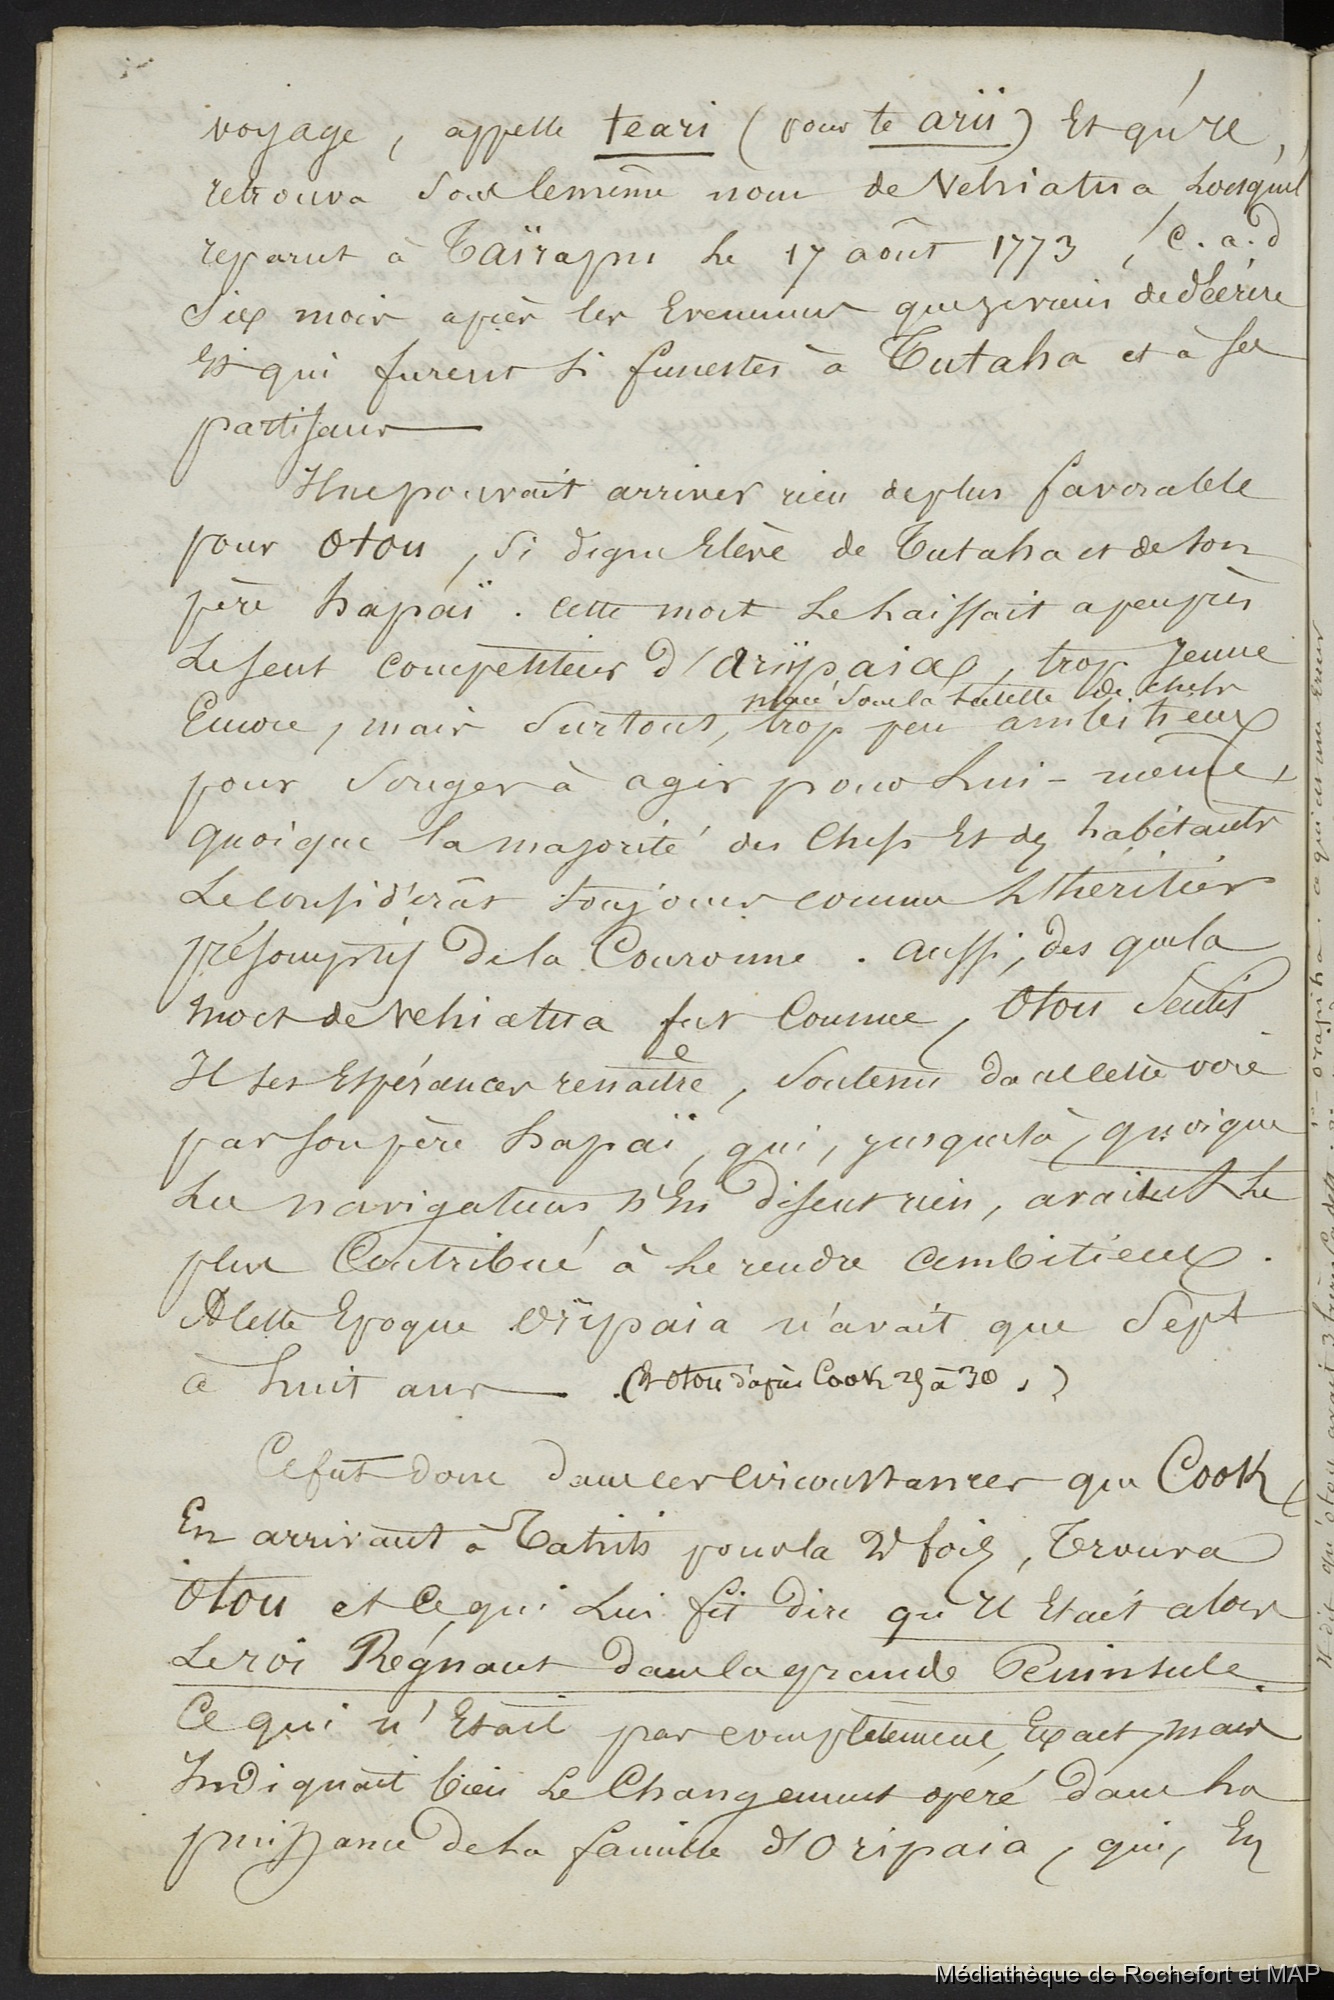 voyage, appelle teari (pour te arii) Et qu'il,
retrouva sous le même nom de Vehiatua, Lorsqu'il
reparut à Taïrapu le 17 août 1773, (c.a.d
Six mois après les Evenemens que je viens de décrire
Et qui furent si funestes à Tutaha et à ses
partisans —
Il ne pouvait arriver rien de plus favorable
pour Otou, si digne Elève de Tutaha et de son
père hapaï. Cette mort Le haissait a peu près
Le seul compétiteur d'Ariipaia, trop Jeune
placé sous la tutelle de chefs
Encore, mais surtout, trop peu ambitieux
pour songer à agir pour Lui-même,
quoique la majorité des Chefs Et des habitants
Le considérât toujours comme L'héritier
présomptif De la Couronne. Aussi, des que la
mort de Vehiatua fut Connue, Otou Sentit
Il ses Espérances renaitre, Soutenu dans cette voie
par son père hapaï, qui, jusque là, quoique
Les navigateurs n'En Disent rien, avait Le
plus Contribué à Le rendre ambitieux.
A cette Epoque Oripaia n'avait que Sept
à huit ans — (Et Otou d'après Cook 29 à 30,)
Ce fut donc dans ces Circonstances que Cook
En arrivant à Tahiti pour la 2e fois, Trouva
Otou et Ce qui Lui fit dire qu'il Etait alors
Le roi Régnant dans la grande Péninsule.
Ce qui n'Etait pas complètement Exact, mais
Indiquait bien Le Changement opéré dans La
puissance De La famille d'Oripaia, qui, En